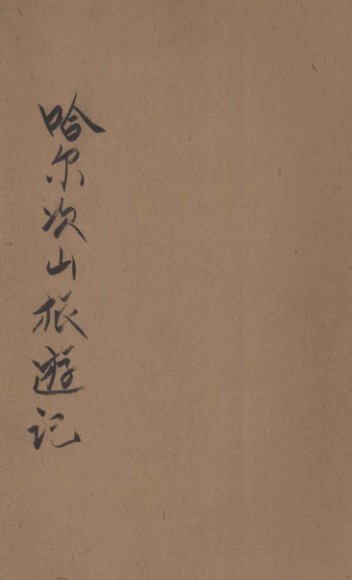 哈尔次山旅遊记